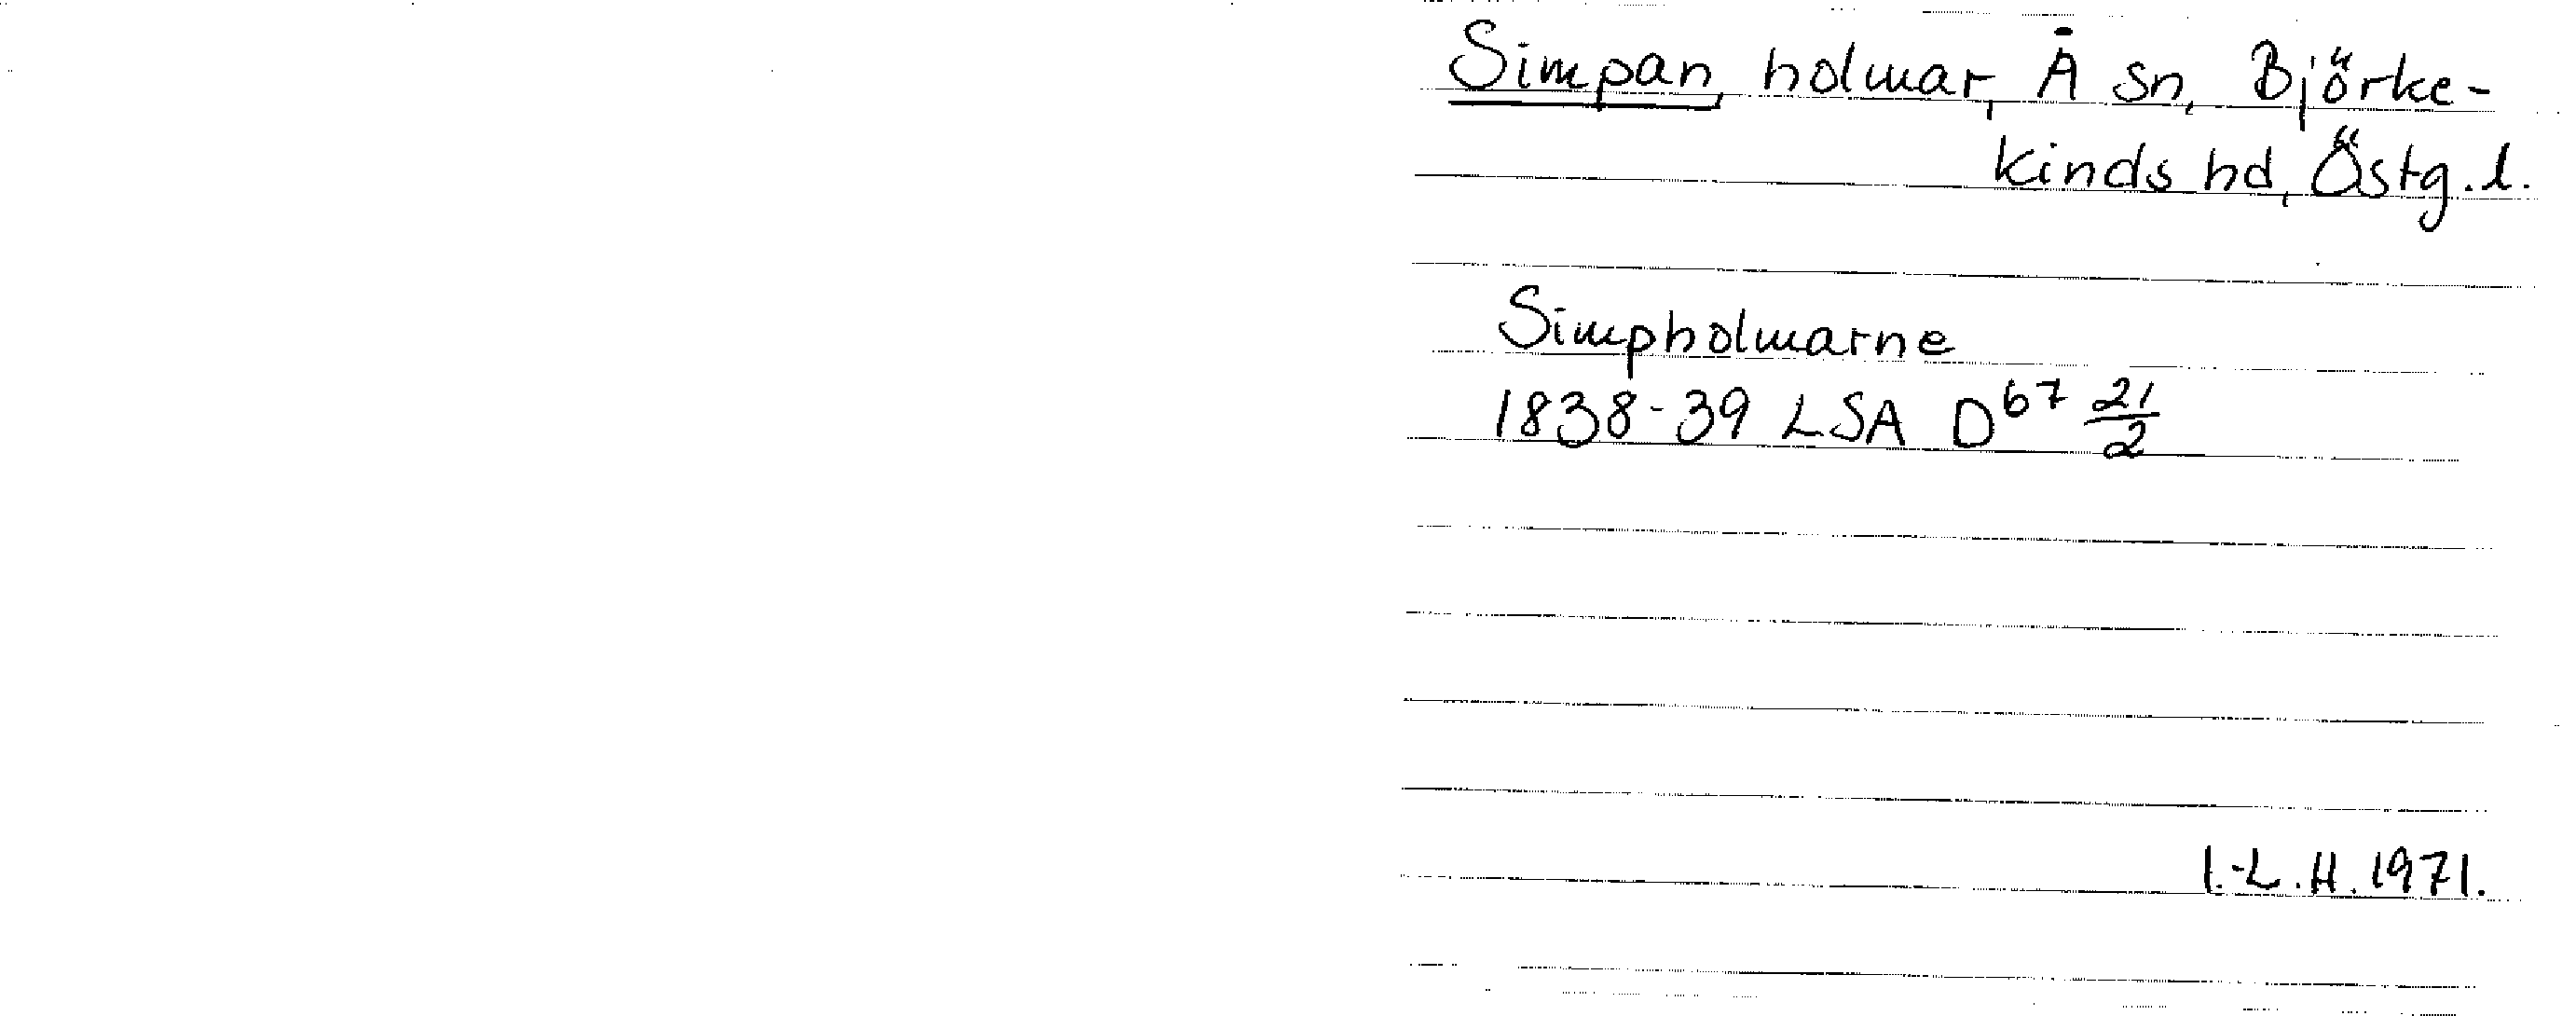 Simpan, holmar, Å sn, Björke-
kinds hd, Östg.l.
Simpholmarne
1838-39 LSA D⁶⁷ 21/2
I.-L.H. 1971.